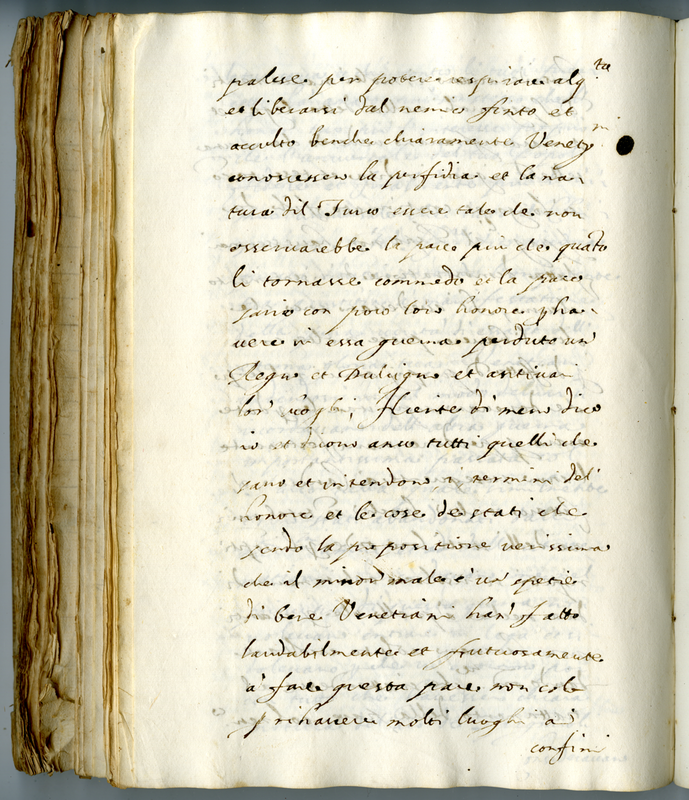 palese per potere respirare alq.ta
et liberarsi dal nemico finto et
occulto benche chiaramente Venet.ni
conoscessero la perfidia et la na-
tura dil Turco essere tale che non
osservarebbe la pace piu che quãto
li tornasse commodo et la pace
saria con poco loro honore p ha-
vere in essa guerra perduto un'
Regno et Dulcigno et Antivari
lor'
Niente di meno dico
io et dicono anco tutti quelli che
sano et intendono i termini del'
honore et le cose de stati che
sendo la propositione verissima
che il minor male è un' spetie
di bene Venetiani han' fatto
laudabilmente et frutuosamente
a' fare questa pace non solo
p rihavere molti luoghi a'
confini